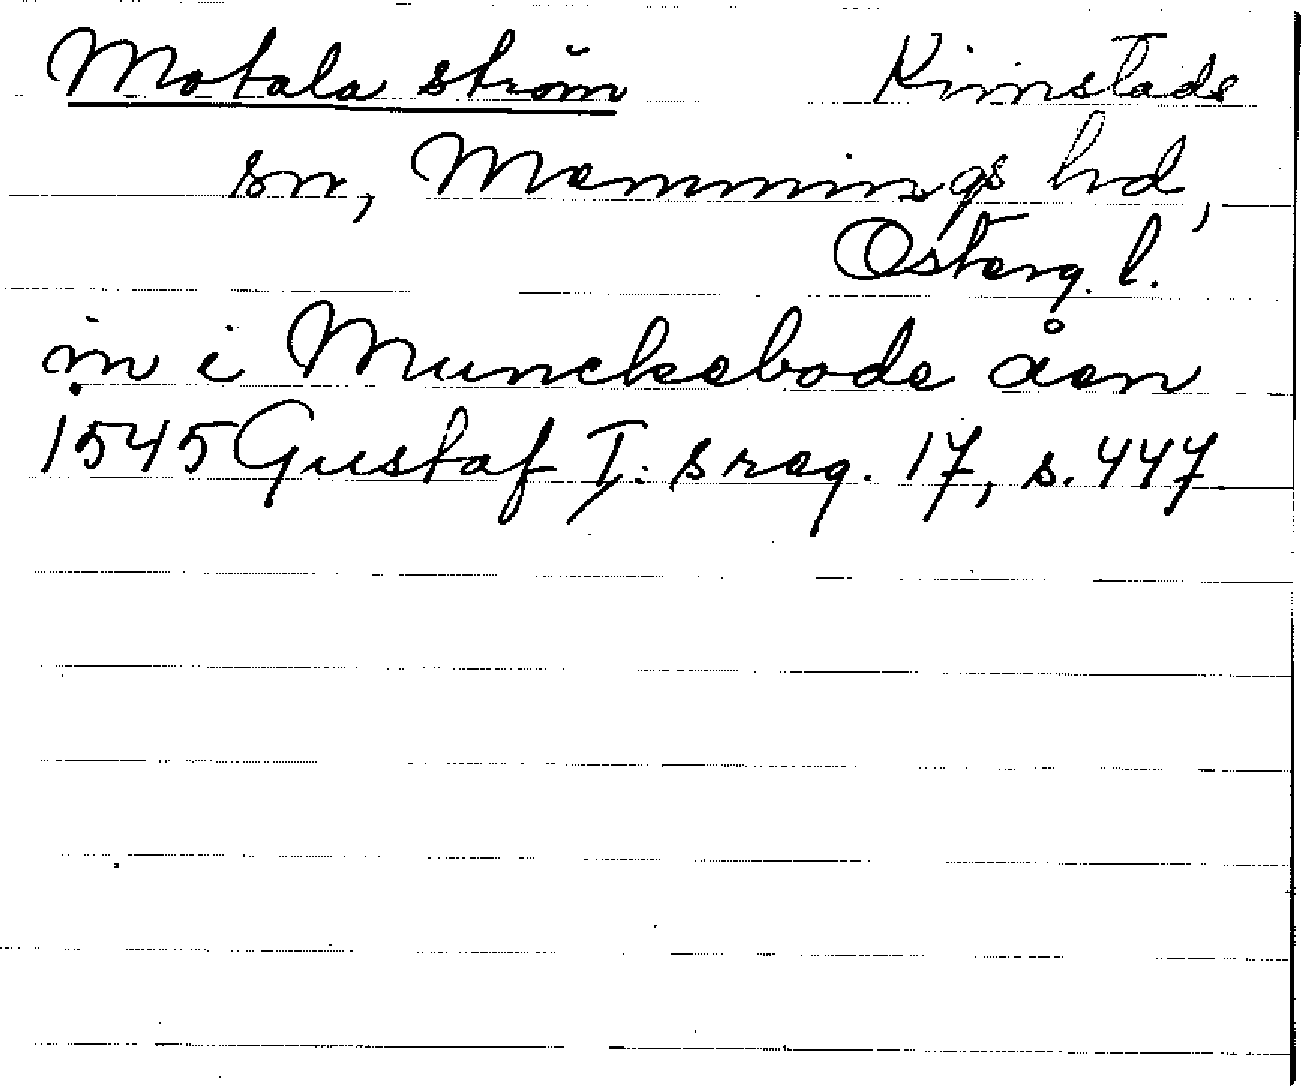 Motala ström Kimstads
sn, Memmings hd,
Österg. l.
in i Munckebode åen
1545 Gustaf I: s reg. 17, s. 447